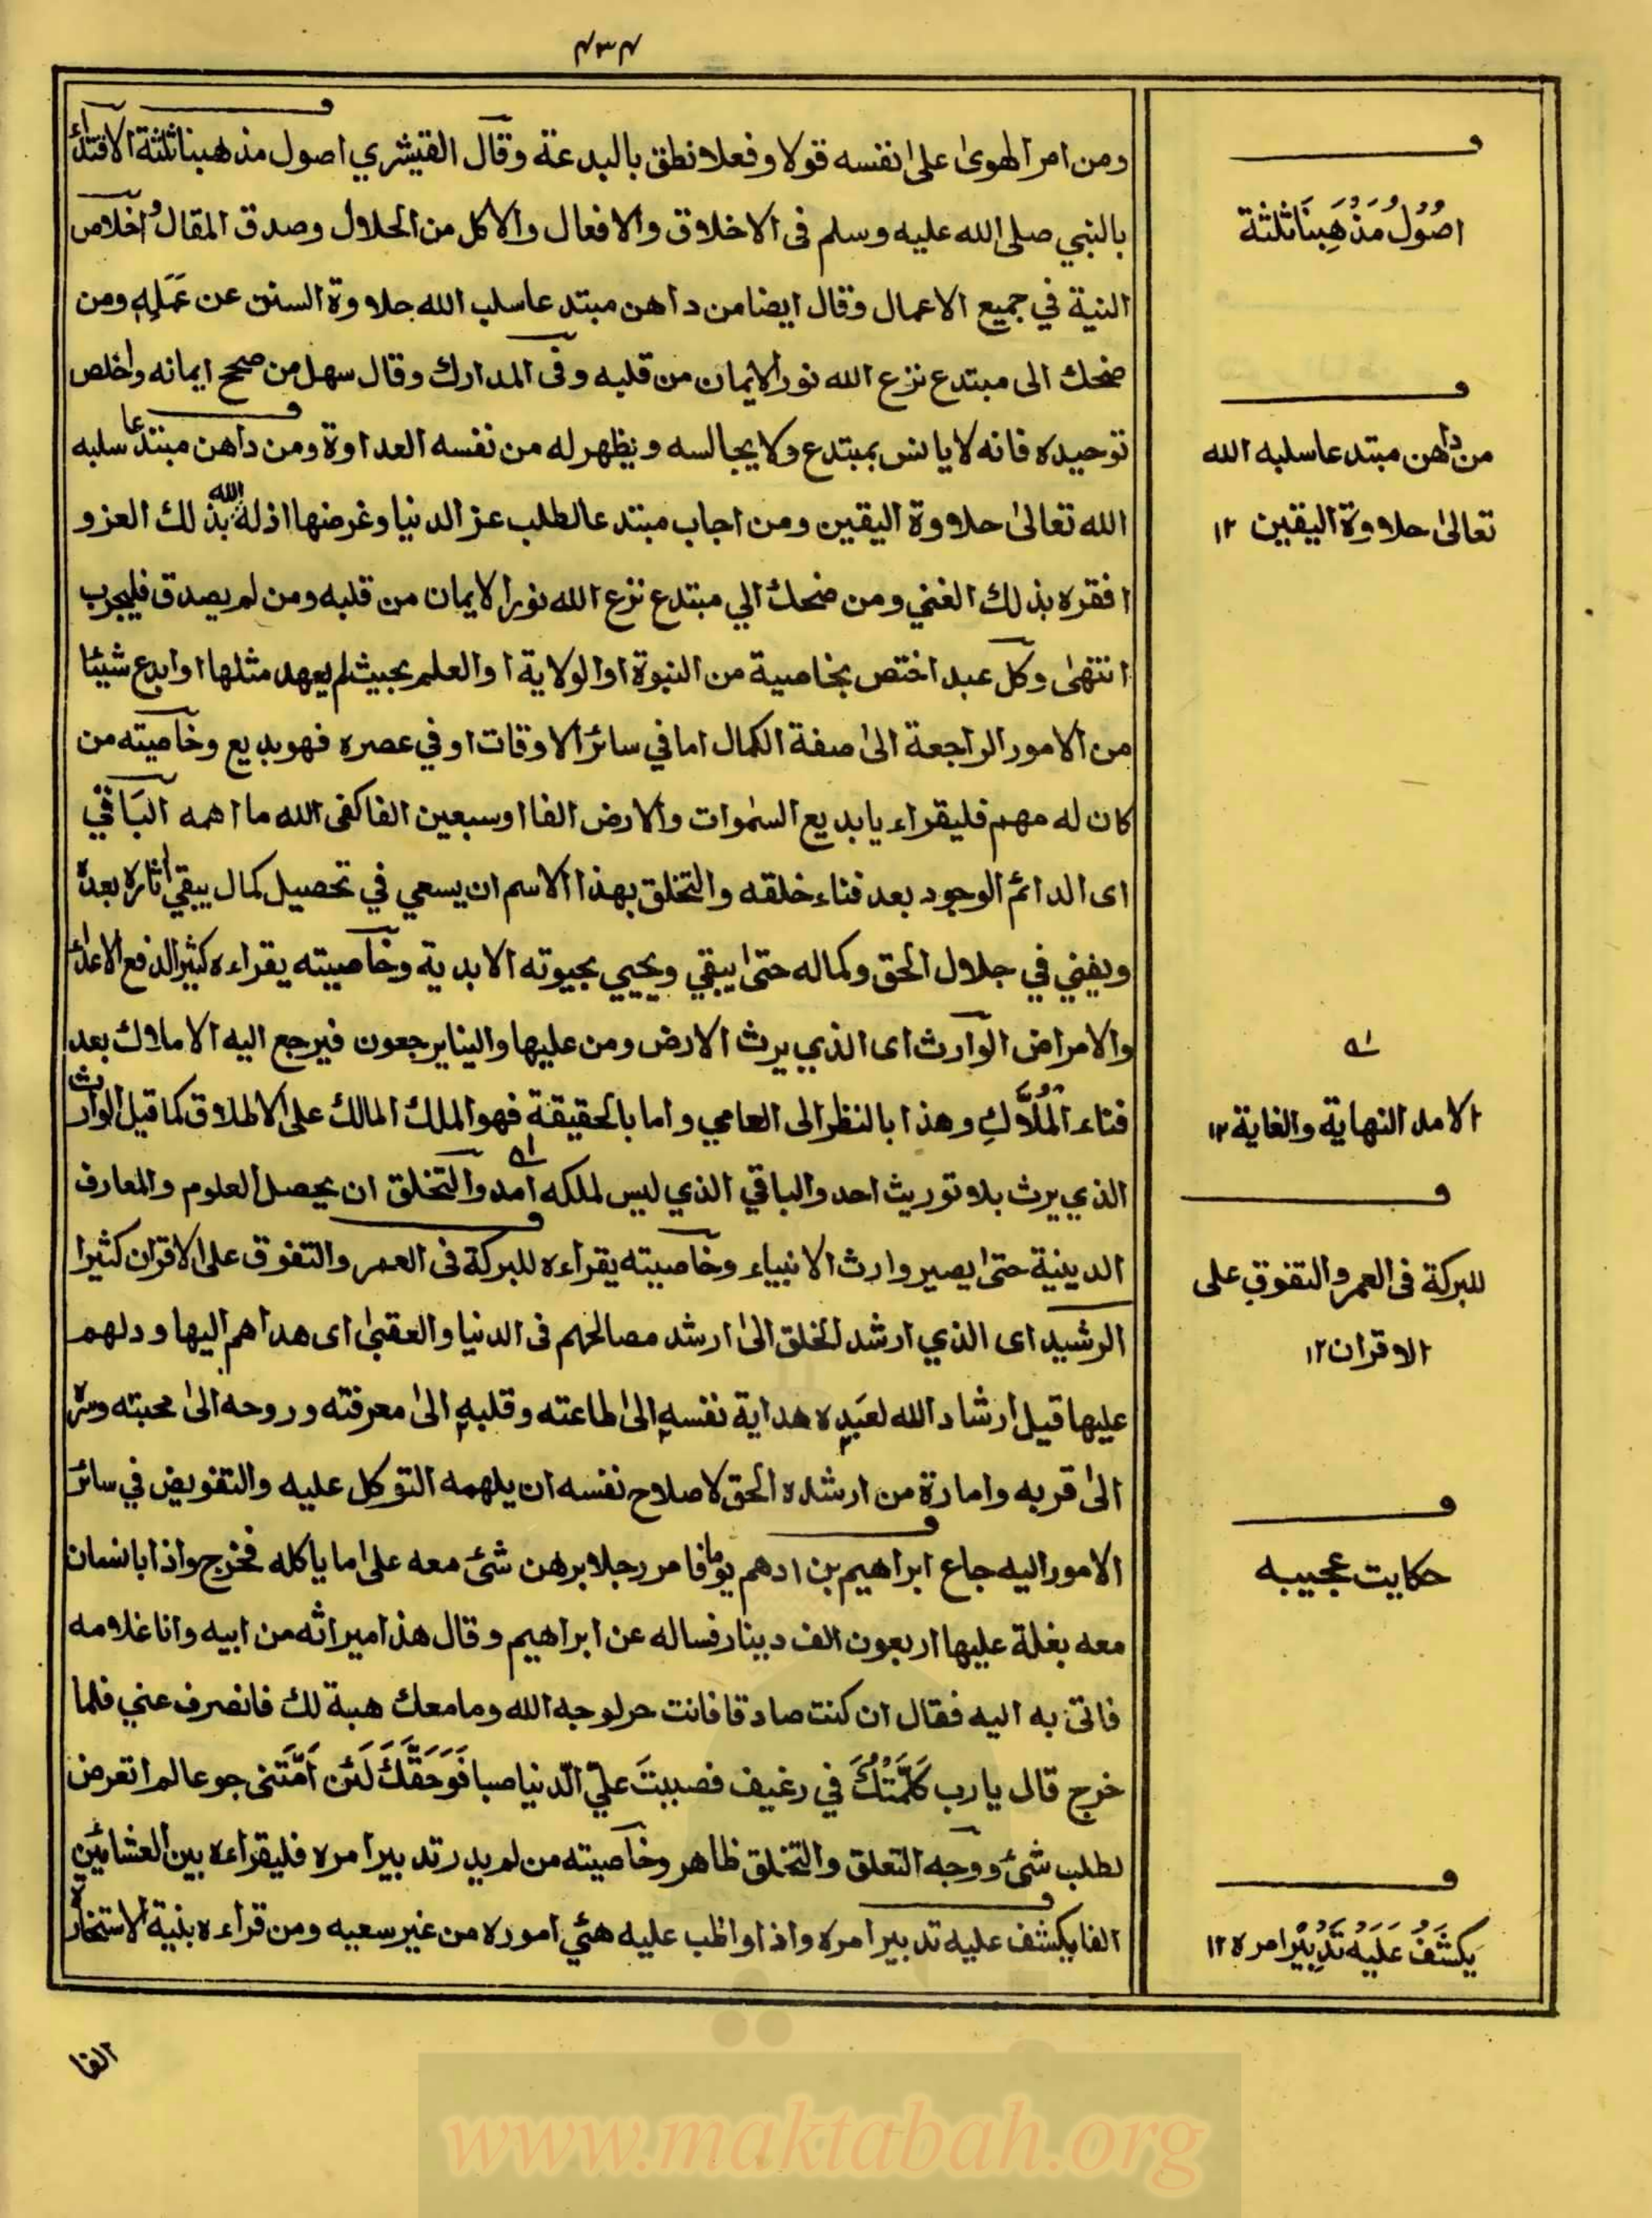 ۴۳۴
ومن امر الهوى على نفسه قولا وفعلا نطق بالبدعة وقال القشيري اصول مذهبنا ثلثة الاقتداء
بالنبي صلى الله عليه وسلم فى الاخلاق والافعال والاكل من الحلال وصدق المقال واخلاص
النية في جميع الاعمال وقال ايضا من داهن مبتدعا سلب الله حلاوة السنن عن عَمَلِهِ ومن
ضحك الى مبتدع نزع الله نور الايمان من قلبه وفى المدارك وقال سهل من صحح ايمانه واخلص
توحيده فانه لا يانس بمبتدع ولا يجالسه ويظهر له من نفسه العداوة ومن داهن مبتدعا سلبه
الله تعالى حلاوة اليقين ومن اجاب مبتدعا لطلب عز الدنيا وغرضها اذله الله بذلك العز و
افقره بذلك الغني ومن ضحك الي مبتدع نزع الله نور الايمان من قلبه ومن لم يصدق فليجرب
انتهى وكل عبد اختص بخاصية من النبوة او الولاية او العلم بحيث لم يعهد مثلها او ابدع شيئا
من الامور الراجعة الى صفة الكمال اما في سائر الاوقات او في عصره فهو بديع وخاصيته من
كان له مهم فليقراء يا بديع السموات والارض الفا او سبعين الفا كفى الله ما اهمه الباقي
اى الدائم الوجود بعد فناء خلقه والتخلق بهذا الاسم ان يسعي في تحصيل كمال يبقي اثاره بعده
ويفني في جلال الحق وكماله حتى يبقي ويحيي بحيوته الابدية وخاصيته يقراءه كثيرا لدفع الاعداء
والامراض الوارث اى الذي يرث الارض ومن عليها والينا يرجعون فيرجع اليه الاملاك بعد
فناء الْمُلَّاكِ وهذا بالنظر الى العامي واما بالحقيقة فهو الملك المالك على الاطلاق كما قيل الوارث
الذي يرث بلا توريث احد والباقي الذي ليس لملكه امد والتخلق ان يحصل العلوم والمعارف
الدينية حتى يصير وارث الانبياء وخاصيته يقراءه للبركة فى العمر والتفوق على الاقران كثيرا
الرشيد اى الذي ارشد الخلق الى ارشد مصالحهم فى الدنيا والعقبى اى هداهم اليها ودلهم
عليها قيل ارشاد الله لعبده هداية نفسه الى طاعته وقلبه الى معرفته وروحه الى محبته وسره
الى قربه وامارة من ارشده الحق لاصلاح نفسه ان يلهمه التوكل عليه والتفويض في سائر
الامور اليه جاع ابراهيم بن ادهم يوما فامر رجلا برهن شئ معه على ما ياكله فخرج واذا بانسان
معه بغلة عليها اربعون الف دينار فساله عن ابراهيم وقال هذا ميراثه من ابيه وانا غلامه
فاتى به اليه فقال ان كنت صادقا فانت حر لوجه الله وما معك هبة لك فانصرف عني فلما
خرج قال يا رب كَلَّمْتُكَ في رغيف فصببتَ عليّ الدنيا صبا فَوَحَقِّكَ لَئن اَمَتَّنى جوعا لم اتعرض
لطلب شئ ووجه التعلق والتخلق ظاهر وخاصيته من لم يدر تدبير امره فليقراءه بين العشائين
الفا يكشف عليه تدبير امره واذا واظب عليه هئي اموره من غير سعيه ومن قراءه بنية الاستخارة
الفا
اصُوْلُ مَذْهَبِنَا ثلثة
من داهن مبتدعا سلبه الله
تعالى حلاوة اليقين ١٢
الامد النهاية والغاية ١٢
للبركة فى العمر والتفوق على
الاقران ١٢
حكايت عجيبه
يكشَفُ عَلَيْهِ تَدْبِيْرُ امره ١٢
www.maktabah.org